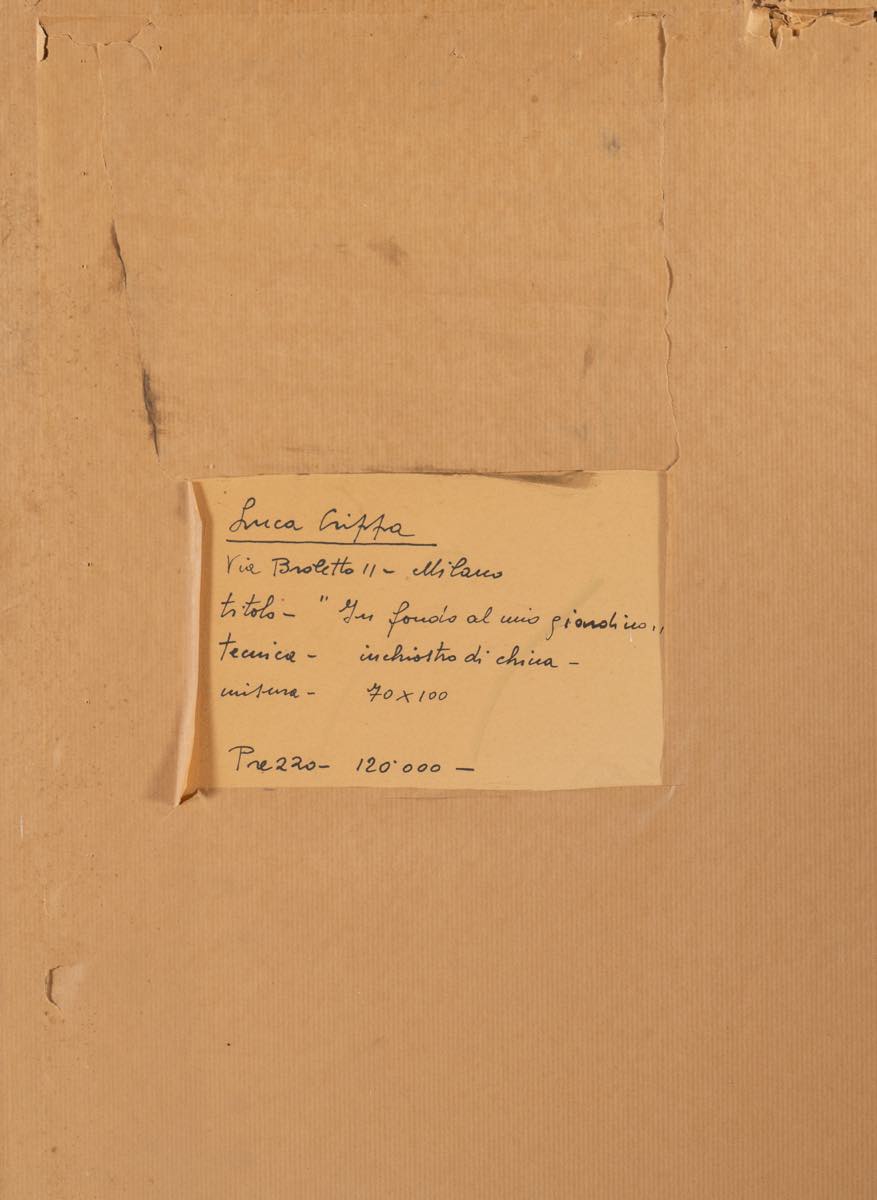 Luca Crippa
Via Broletto 11 - Milano
titolo - " In fondo al mio giardino "
tecnica - inchiostro di china -
misura - 70 x 100
Prezzo - 120.000 -